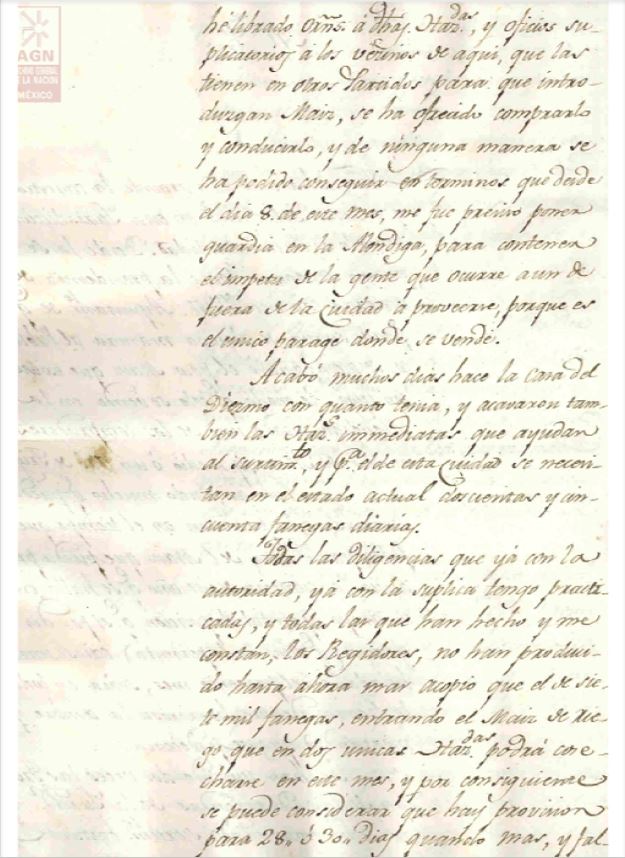 AGN
ARCHIVO GENERAL
DE LA NACION
MÉXICO
hé librado Orñs. â dhas. Haz.das, y oficios su-
plicatorios â los vecinos de aqui, que las
tienen en otros Partidos para que intro-
duzgan Maiz, se ha ofrecido comprarlo
y conducirlo, y de ninguna manera se
ha podido conseguir en terminos que desde
el dia 8. de este mes, me fue preciso poner
guardia en la Alondiga, para contener
el impetu de la gente que ocurre aun de
fuera de la Ciudad â proveerse, porque es
el unico parage donde se vende.
Acabó muchos dias hace la Casa del
Diezmo con quanto tenia, y acavaron tam-
bien las Haz.s immediatas que ayudan
al surtim.to, y p.a el de esta Ciudad se necesi-
tan en el estado actual doscientas y cin-
cuenta fanegas diarias.
Todas las diligencias que yá con la
autoridad, yá con la suplica tengo practi-
cadas, y todas las que han hecho y me
constan, los Regidores, no han produci-
do hasta ahora mas acopio que el de sie-
te mil fanegas, entrando el Maiz de rie-
go que en dos unicas Haz.das podrá cose-
charse en este mes, y por consiguiente
se puede considerar que hay provision
para 28,, ó 30,, dias quando mas, y fal-